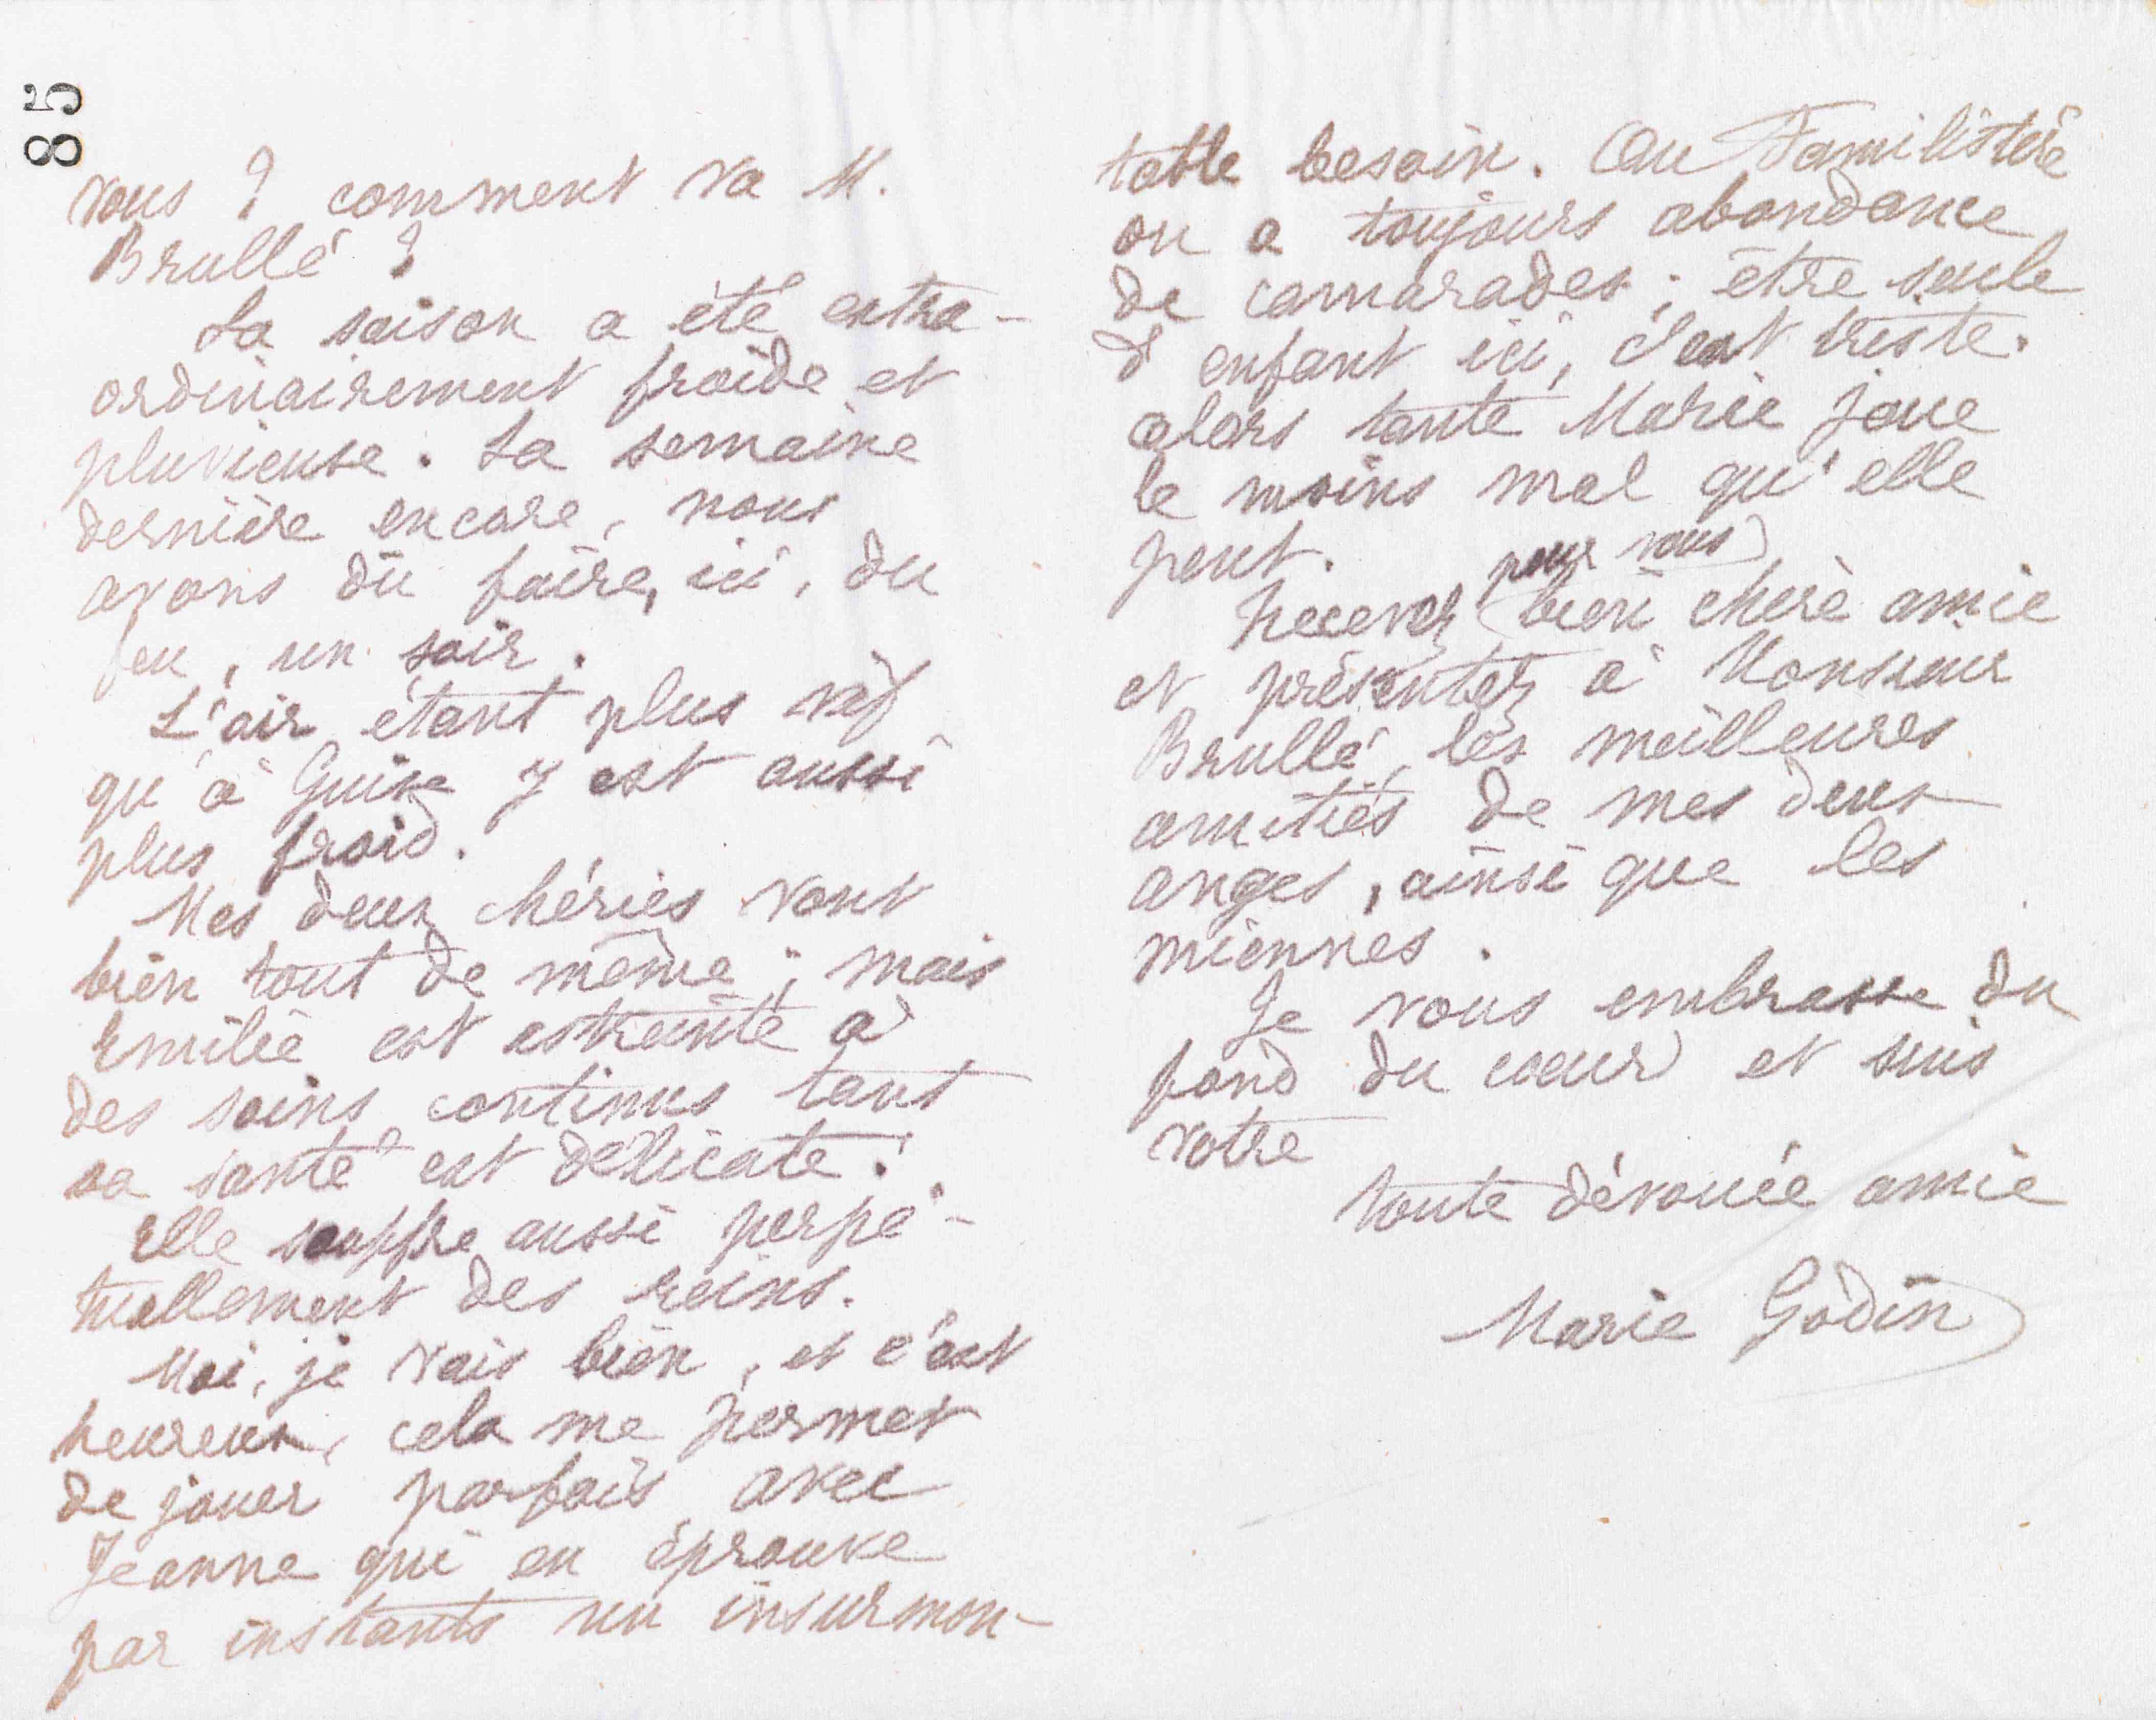 85
vous ? comment va M.
Brullé ?
La saison a été extra-
ordinairement froide et
pluvieuse. La semaine
dernière encore, nous
avons dû faire, ici, du
feu, un soir.
L'air étant plus vif
qu'à Guise y est aussi
plus froid.
Mes deux chéries vont
bien tout de même ; mais
Emilie est astreinte à
des soins continus tant
sa santé est délicate.
Elle souffre aussi perpé-
tuellement des reins.
Moi, je vais bien, et c'est
heureux, cela me permet
de jouer parfois avec
Jeanne qui en éprouve
par instants un insurmon-
table besoin. Au Familistère
on a toujours abondance
de camarades ; être seule
d'enfant ici, c'est triste.
alors tante Marie joue
le moins mal qu'elle
peut.
pour vous
Recevez bien chère amie
et présentez à Monsieur
Brullé, les meilleures
amitiés de mes deux
anges, ainsi que les
miennes.
Je vous embrasse du
fond du coeur et suis
votre
toute dévouée amie
Marie Godin